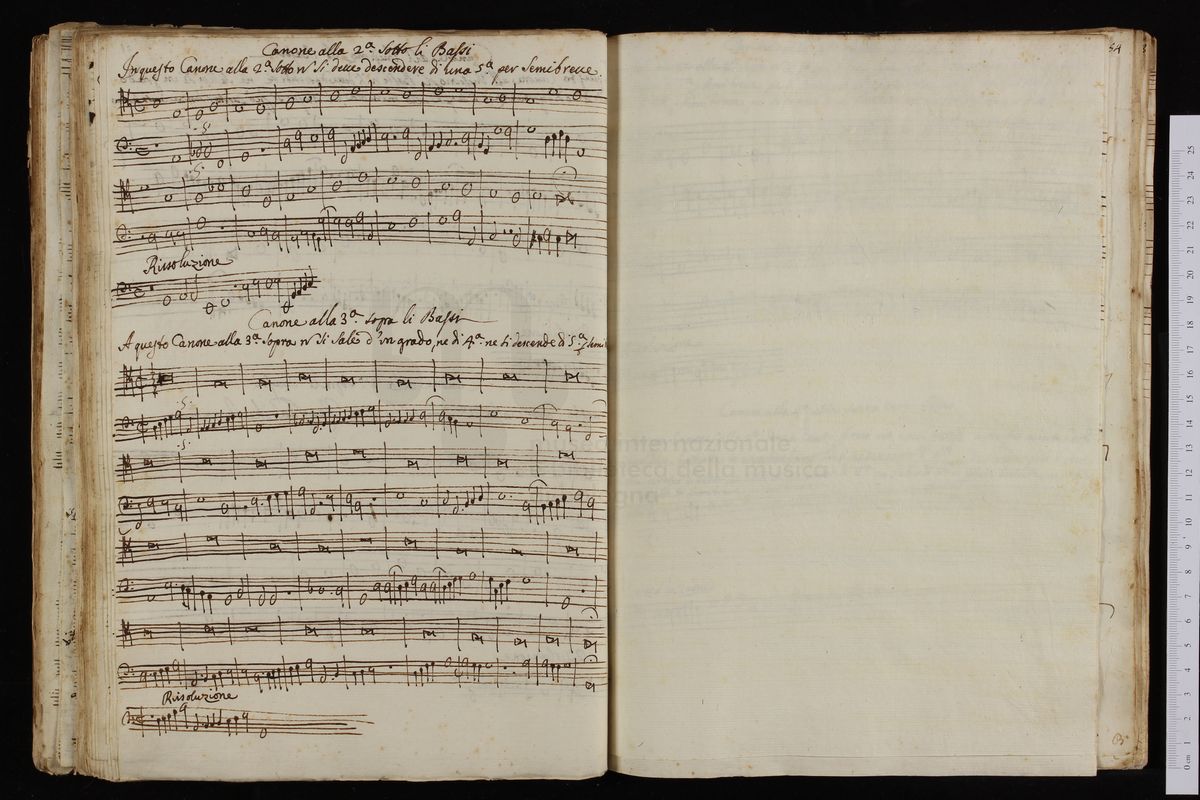 Canone alla 2ª Sotto li Bassi
In questo Canone alla 2ª Sotto nō si deve descendere di una 5ª per Semibreve.
:S:
:S:
Rissoluzione
Canone alla 3ª Sopra li Bassi
A questo Canone alla 3ª Sopra nō si Sale d'un grado, ne di 4ª ne si descende di 5ª
:S:
:S:
Rissoluzione
84
museo internazionale
e biblioteca della musica
25
24
23
22
21
20
19
18
17
16
15
14
13
12
11
10
9
8
7
6
5
4
3
2
1
0 cm